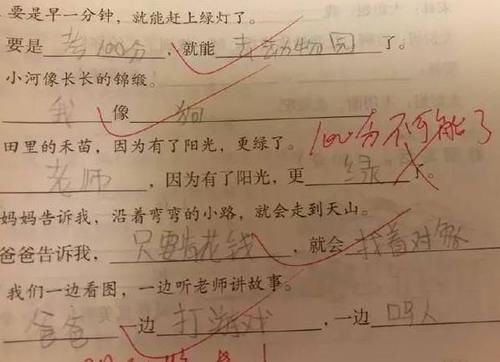 要是早一分钟，就能赶上绿灯了。
要是 考100分 ，就能 去动物园 了。
小河像长长的锦缎。
我 像 狗
100分不可能了
田里的禾苗，因为有了阳光，更绿了。
老师 ，因为有了阳光，更 绿 了。
妈妈告诉我，沿着弯弯的小路，就会走到天山。
爸爸告诉我， 只要肯花钱 ，就会 找着对象
我们一边看图，一边听老师讲故事。
爸爸 一边 打游戏 ，一边 吗人